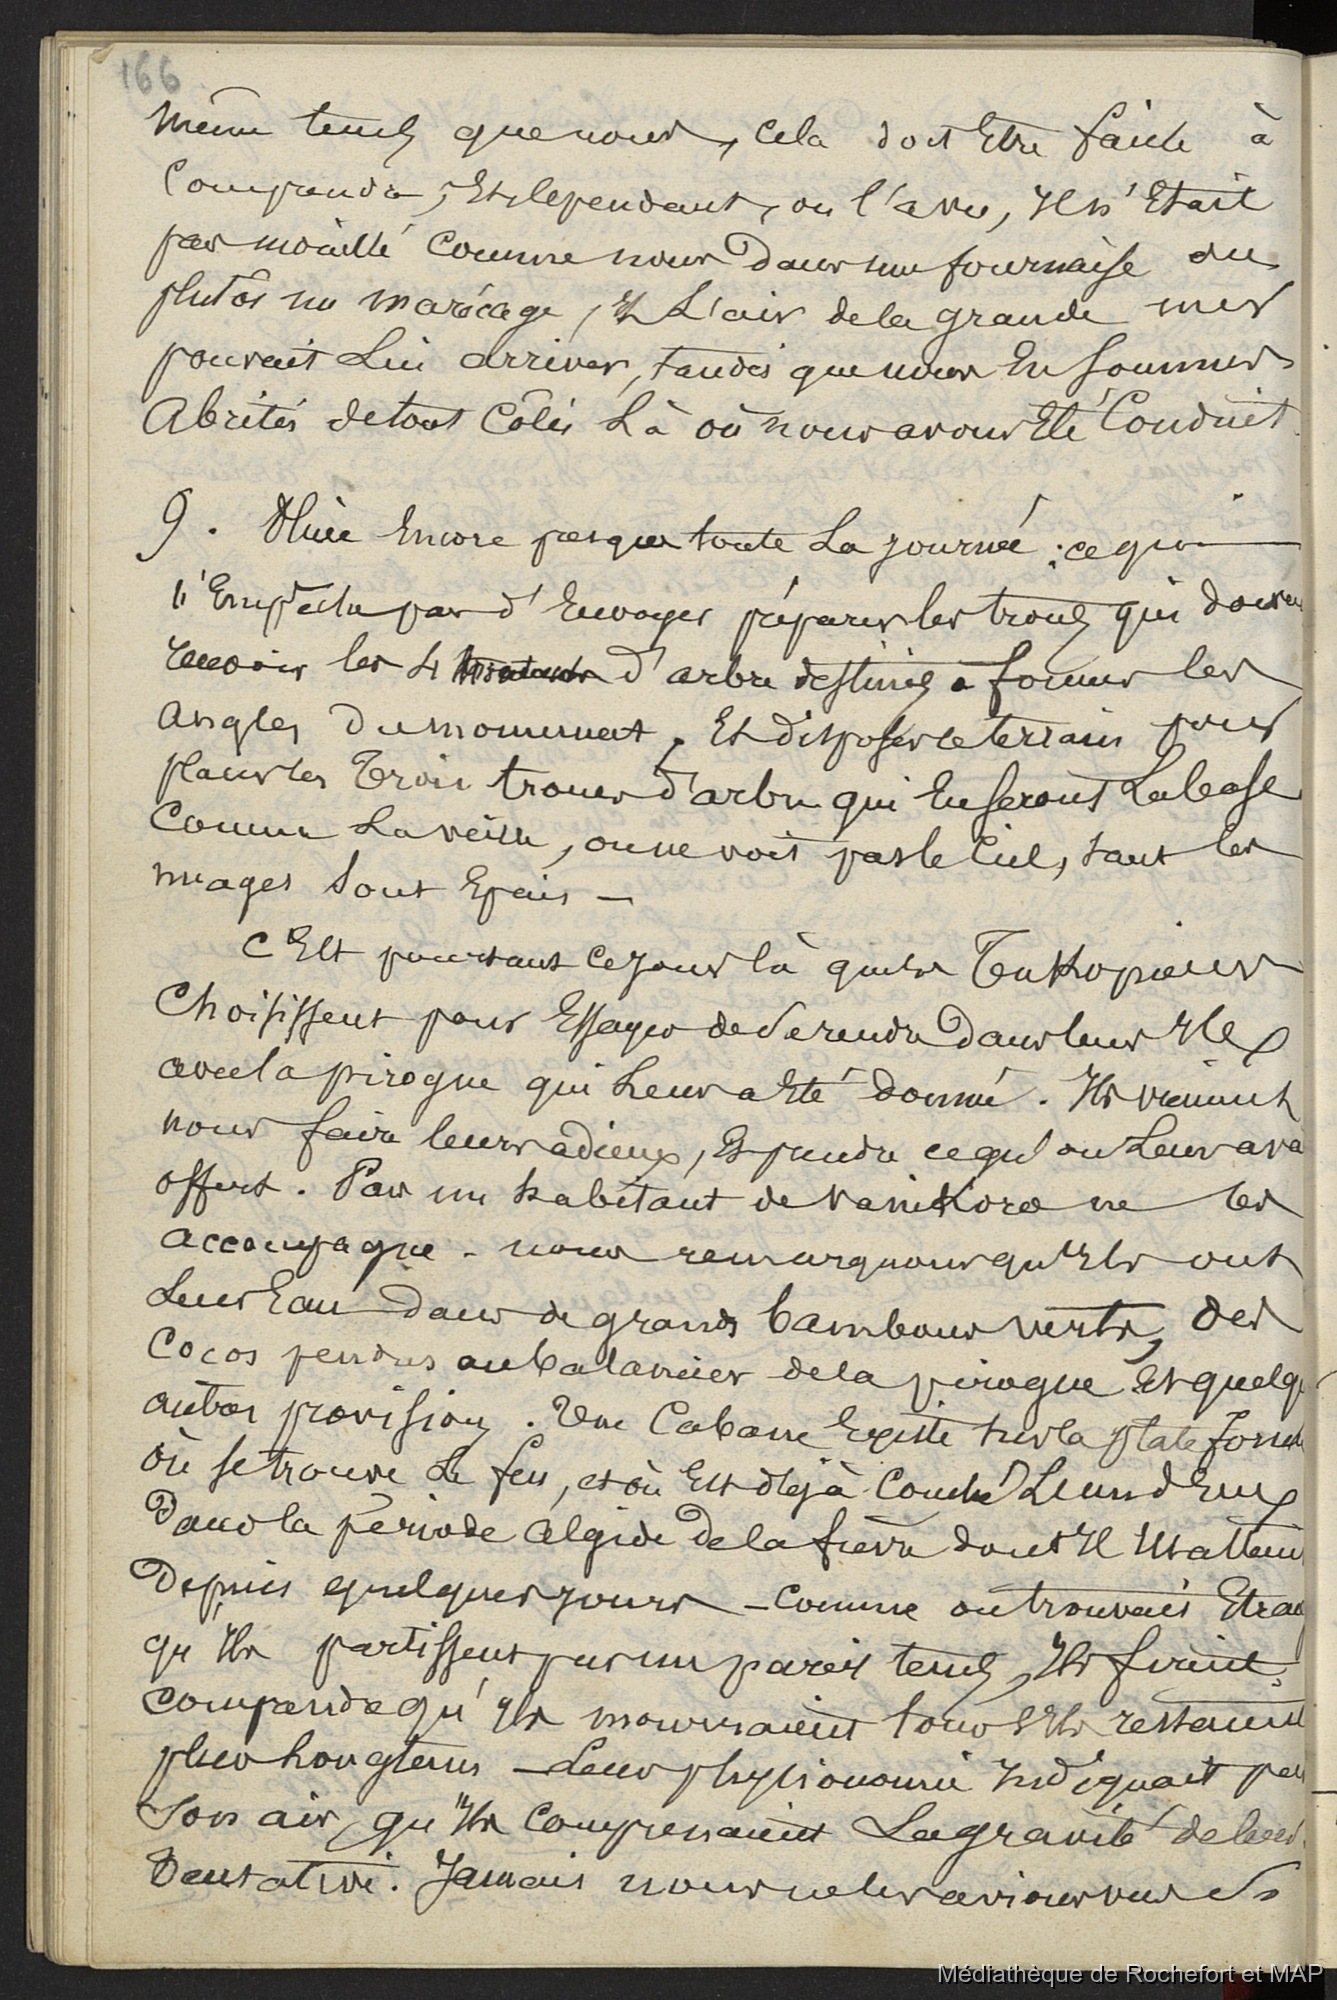 166
même tems que nous, cela doit Etre facile à
Comprendre, Et cependant, on l'a vu, Il n'Etait
pas mouillé Comme nous Dans une fournaise ou
plutôt un marécage, Et L'air de la grande mer
pouvait Lui arriver, tandis que nous En Sommes
Abrités de tout Côtés Là où nous avons Eté Conduit
9. Pluie Encore presque toute La journée ; ce qui
n'Empêche pas d'Envoyer préparer les trous qui doivent
recevoir les 4 d'arbre destinés à former les
angles Du monument, Et disposer le terrain pour
placer les Trois troncs d'arbre qui En feront La base
Comme La veille, on ne voit pas le Ciel, tant les
nuages Sont Epais —
C'Est pourtant ce jour là que les Tukopiens
Choisissent pour Essayer de Se rendre Dans leur Ile
avec la pirogue qui Leur a Eté donné. Ils viennent
nous faire leurs adieux, Et prendre ce qu'on Leur ava
offert. Pas un habitant de Vanikoro ne les
accompagne - nous remarquons qu'Ils ont
Leur Eau Dans de grands bambous verts, des
Cocos pendus au balancier de la pirogue Et quelqu
autres provisions. Une Cabane Existe sur la plate forme
où se trouve Le feu, et où Est déjà Couché L'un d'Eux
Dans la période algide De la fièvre dont Il Est atteint
Depuis quelques jours — Comme on trouvait Etran
qu'Ils partissent par un pareil tems, Ils firent
comprendre qu'Ils mourraient tous S'Ils restaient
plus Longtems — Leur physionomie Indiquait par
Son air, qu'Ils Comprenaient La gravité de leur
Tentative. Jamais nous ne les avions vus Si
Médiathèque de Rochefort et MAP